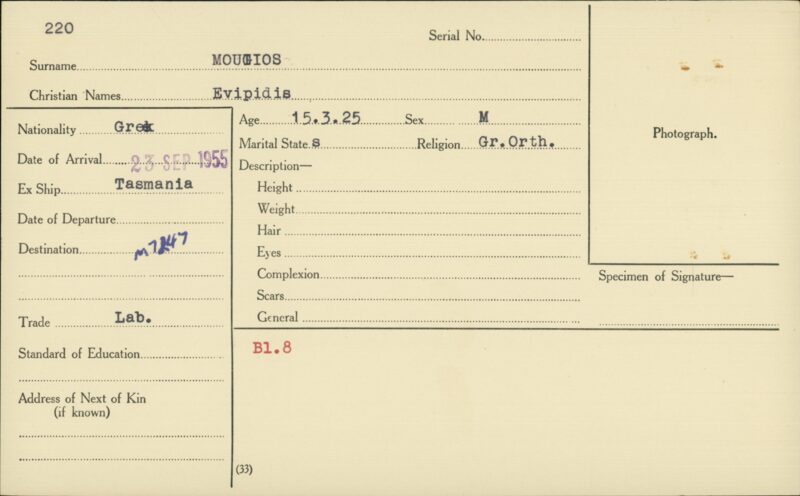 220
Serial No.
Surname MOUGIOS
Christian Names Evipidis
Nationality Greek
Date of Arrival 23 SEP 1955
Ex Ship Tasmania
Date of Departure
Destination
Trade Lab.
Standard of Education
Address of Next of Kin
(if known)
Age 15.3.25 Sex M
Marital State s Religion Gr.Orth.
Description—
Height
Weight
Hair
Eyes
Complexion
Scars
General
B1.8
(33)
Photograph.
Specimen of Signature—